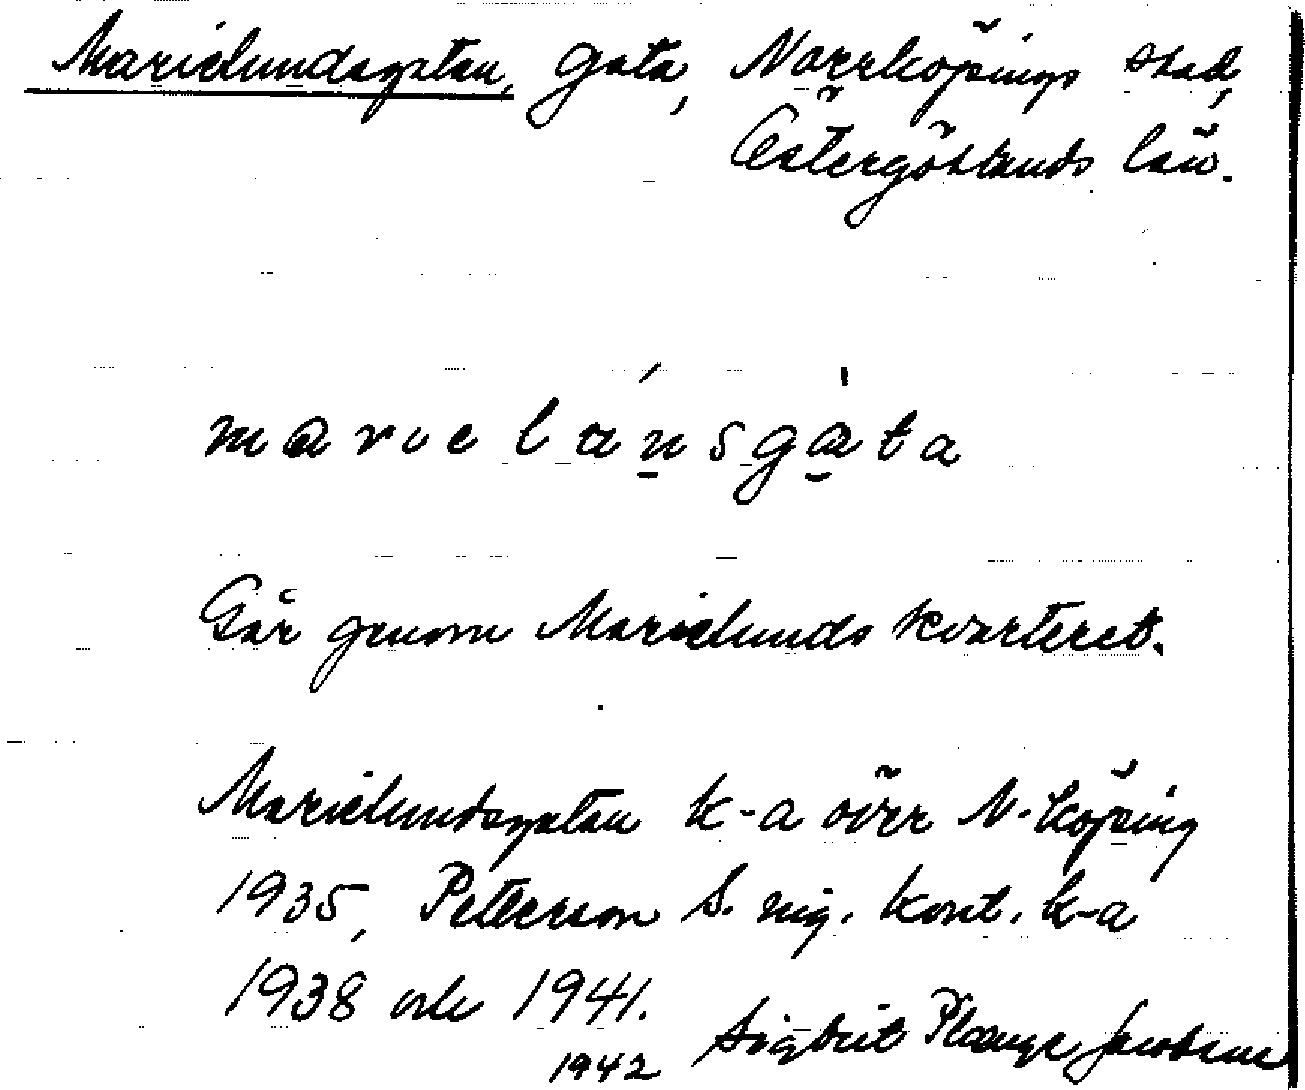 Marielundsgatan, gata, Norrköpings stad,
Östergötlands län.
marielunsgata
Går genom Marielunds kvarteret.
Marielundsgatan k-a över N-köping
1935, Petterson S. ing. kont. k-a
1938 och 1941.
1942 Sigbrit Plænge Jacobson